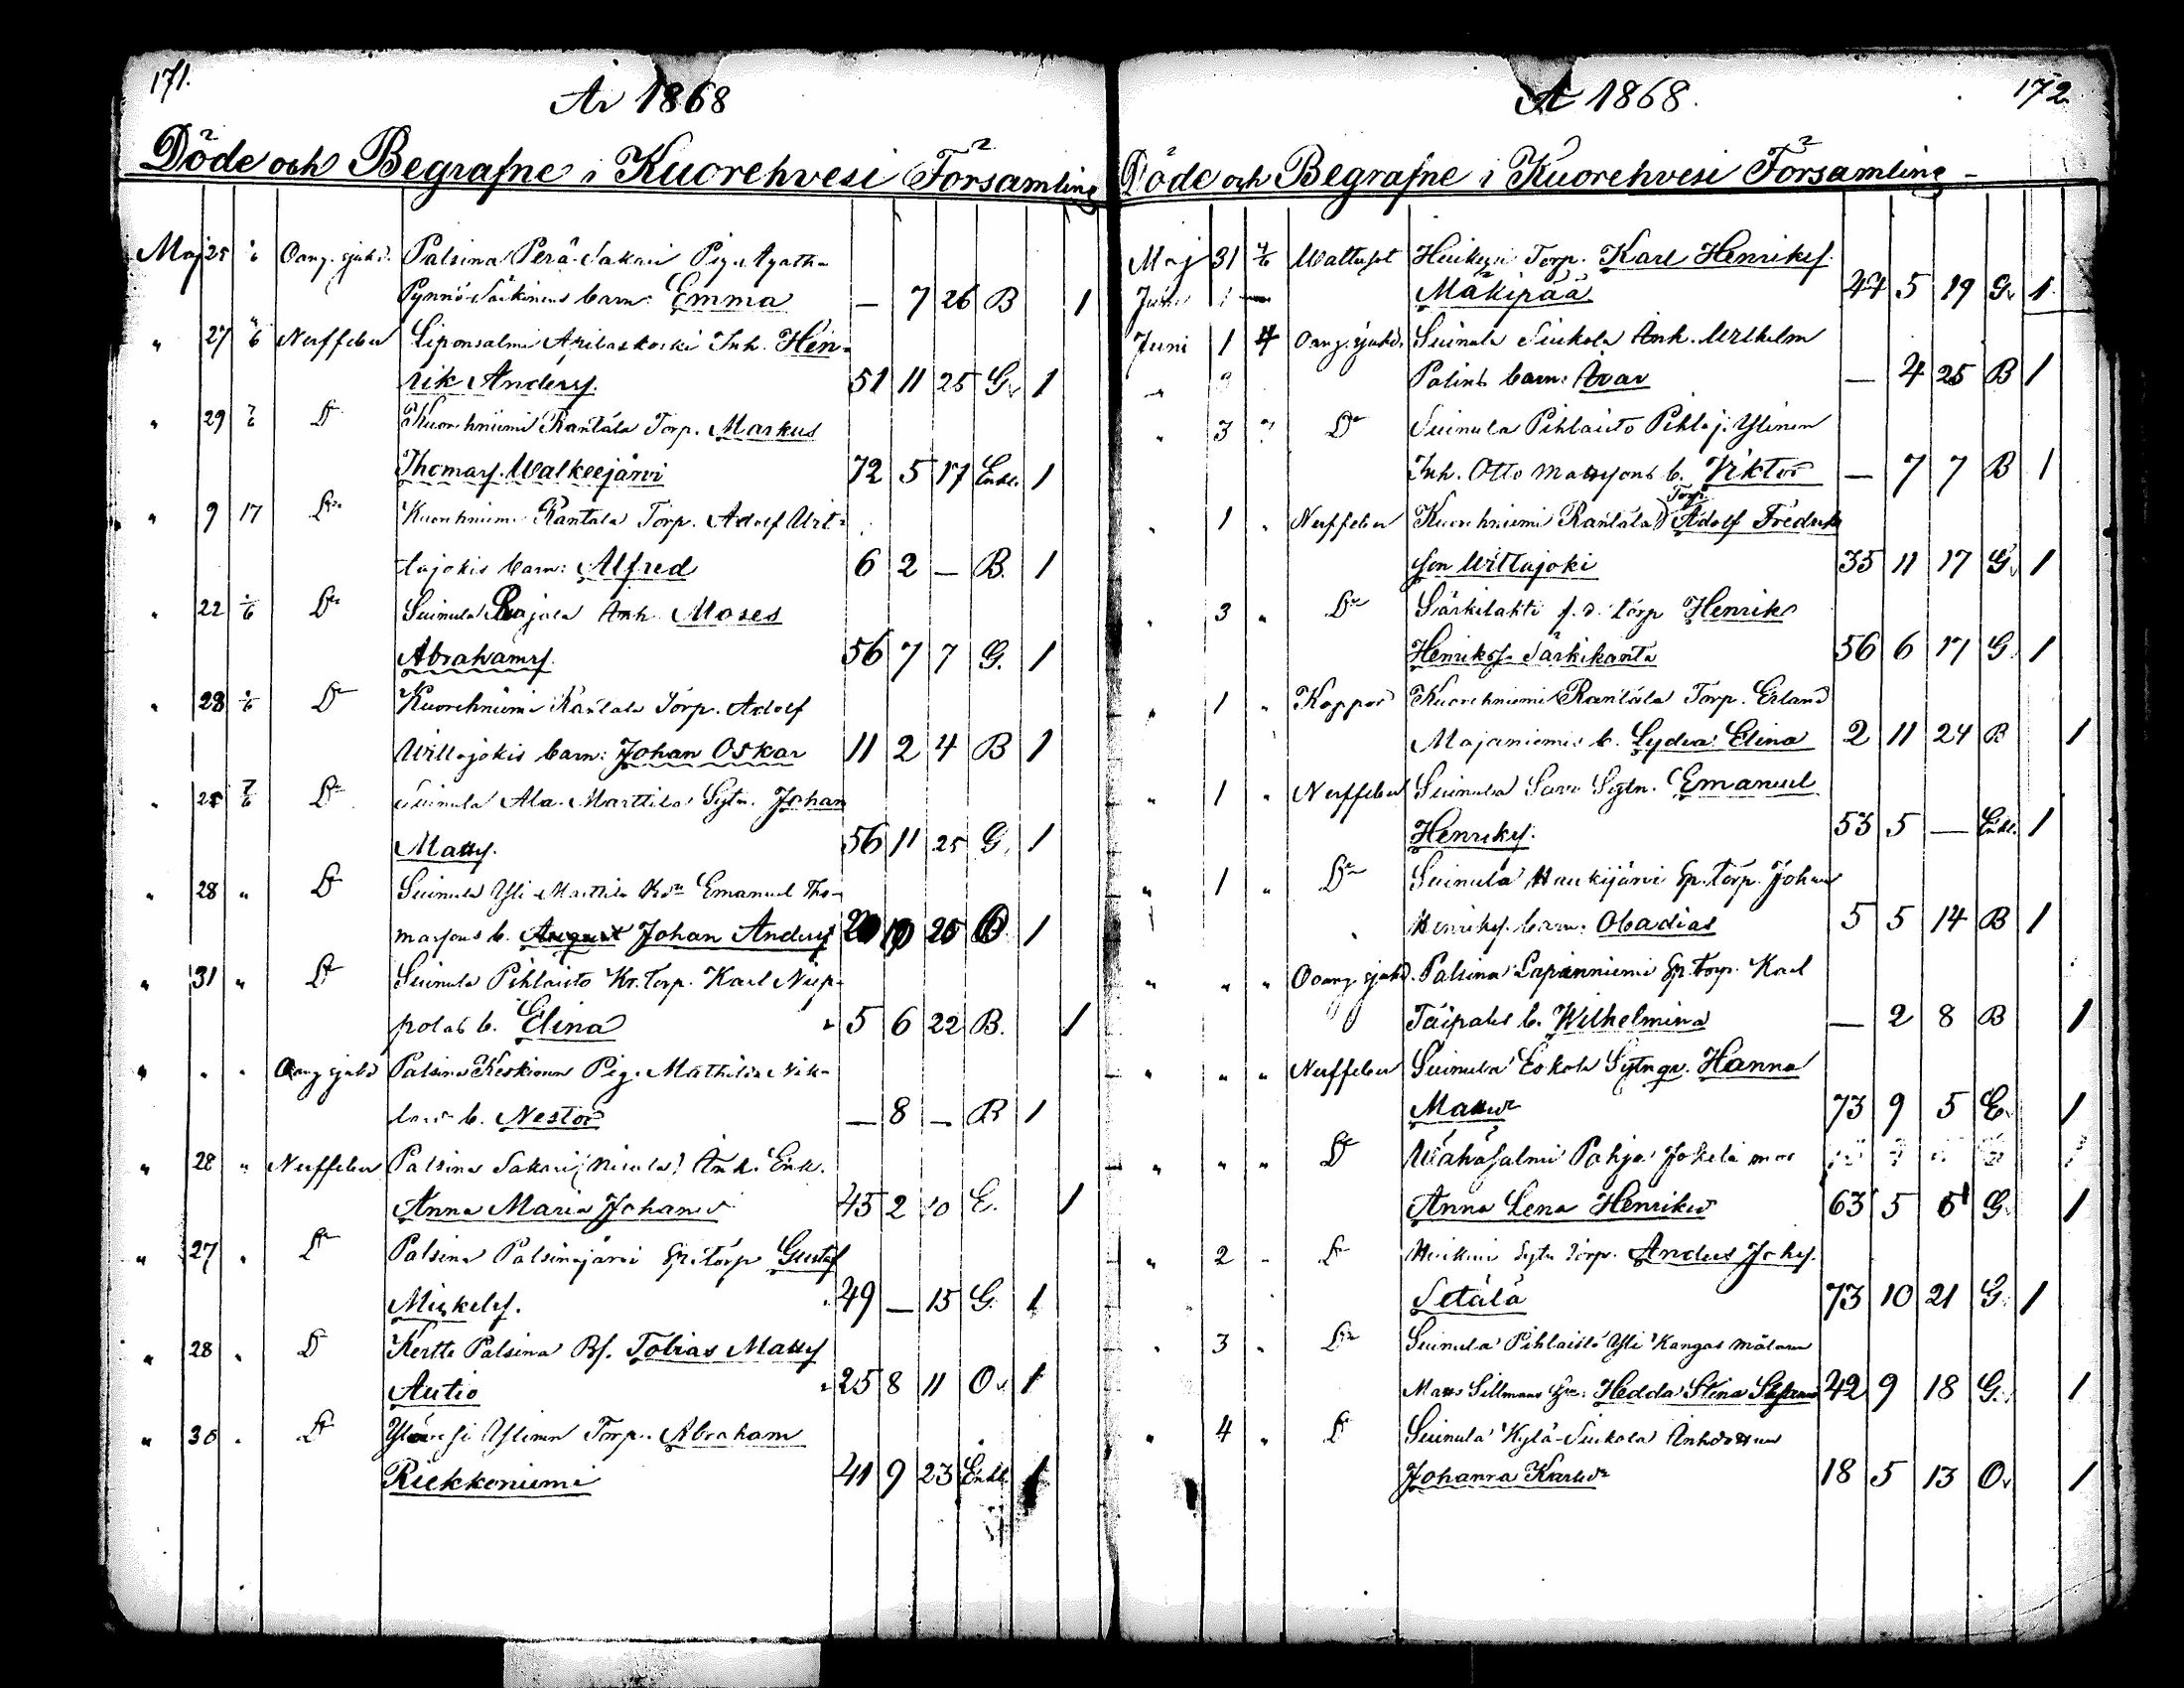 171.
År 1868
Döde och Begrafne i Kuorehvesi Församling
Maj 25 Oang. sjukd. Palsina Perä-Sakari Pig. Agatha
Pynnö-Särkinens barn: Emma — 7 26 B 1
" 27 Nerffeber Liponsalmi Apilaskoski Inh. Hen-
rik Andersf. 51 11 25 G. 1
" 29 Do Kuorehniemi Rantala Torp. Markus
Thomasf. Walkeejärvi 72 5 17 Enkl. 1
" 9 17 Do Kuorehniemi Rantala Torp. Adolf Wit-
tajokis barn: Alfred 6 2 — B. 1
" 22 Do Suinula Rajala Inh. Moses
Abrahamsf. 56 7 7 G. 1
" 28 Do Kuorehniemi Rantala Torp. Adolf
Wittajokis barn: Johan Oskar 11 2 4 B 1
" 25 7/6 Do Suinula Ala-Marttila Sytn. Johan
Mattsf. 56 11 25 G. 1
" 28 " Do Suinula Yli-Marttila Emanuel Tho-
masfons b. Johan Andersf 1
" 31 " Do Suinula Pihlaisto Kr. Torp. Karl Niip-
polas b. Elina 5 6 22 B. 1
" " " Oang. sjukd Palsina Keskinen Pig. Mathilda Nik-
b. Nestor — 8 — B 1
" 28 " Nerffeber Palsina Sakari Inh. Enk.
Anna Maria Johansd. 45 2 10 E. 1
" 27 " Do Palsina Palsinajärvi Sp. torp Gustaf
Mickelsf. 49 — 15 G. 1
" 28 " Do Kertte Palsina Bf. Tobias Mattsf
Autio 25 8 11 O. 1
" 30 " Do Ylinen Torp. Abraham
Riekkoniemi 41 9 23 Enkl. 1
172.
År 1868.
Döde och Begrafne i Kuorehvesi Församling
Maj 31 7/6 Wattusot Torp. Karl Henriksf.
Mäkipää 44 5 19 G. 1
Juni 1
Juni 1 Oang. sjukd. Suinula Siukola Inh. Wilhelm
Palins barn: — 4 25 B 1
" 3 Do Suinula Pihlaisto Pihlaj. Ylinen
Inh. Otto Mattsfons b. Viktor — 7 7 B 1
" 1 " Nerffeber Kuorehniemi Rantala Torp. Adolf Fredriks
fon Wittajoki 35 11 17 G. 1
" 3 " Do Särkilahti f. d. torp Henrik
Henriksf. Särkikanta 56 6 17 G. 1
" 1 " Koppor Kuorehniemi Rantala Torp. Erland
Majaniemis b. Lydia Elina 2 11 24 B 1
" 1 " Nerffeber Suinula Sytn. Emanuel
Henriksf. 53 5 — Enkl. 1
" 1 " Do Suinula Haukijärvi Sp. Torp. Johan
Henriksf. barn: Obadias 5 5 14 B 1
" " " Oang. sjukd. Palsina Lapinniemi Sp. Torp. Karl
Taipales b. Wilhelmina — 2 8 B 1
" " " Nerffeber Suinula Eskola Hanna
Mattsdr 73 9 5 E. 1
" " " Do Wähäsalmi Pohja Jokela
Anna Lena Henriksd 63 5 G. 1
" 2 " Do torp. Anders Johsf.
Setälä 73 10 21 G. 1
" 3 " Do Suinula Pihlaisto Yli Kangas
Matts Sillmans Hedda Stina 42 9 18 G. 1
" 4 " Do Suinula Kylä-Siukola
Johanna Karlsdr 18 5 13 O. 1